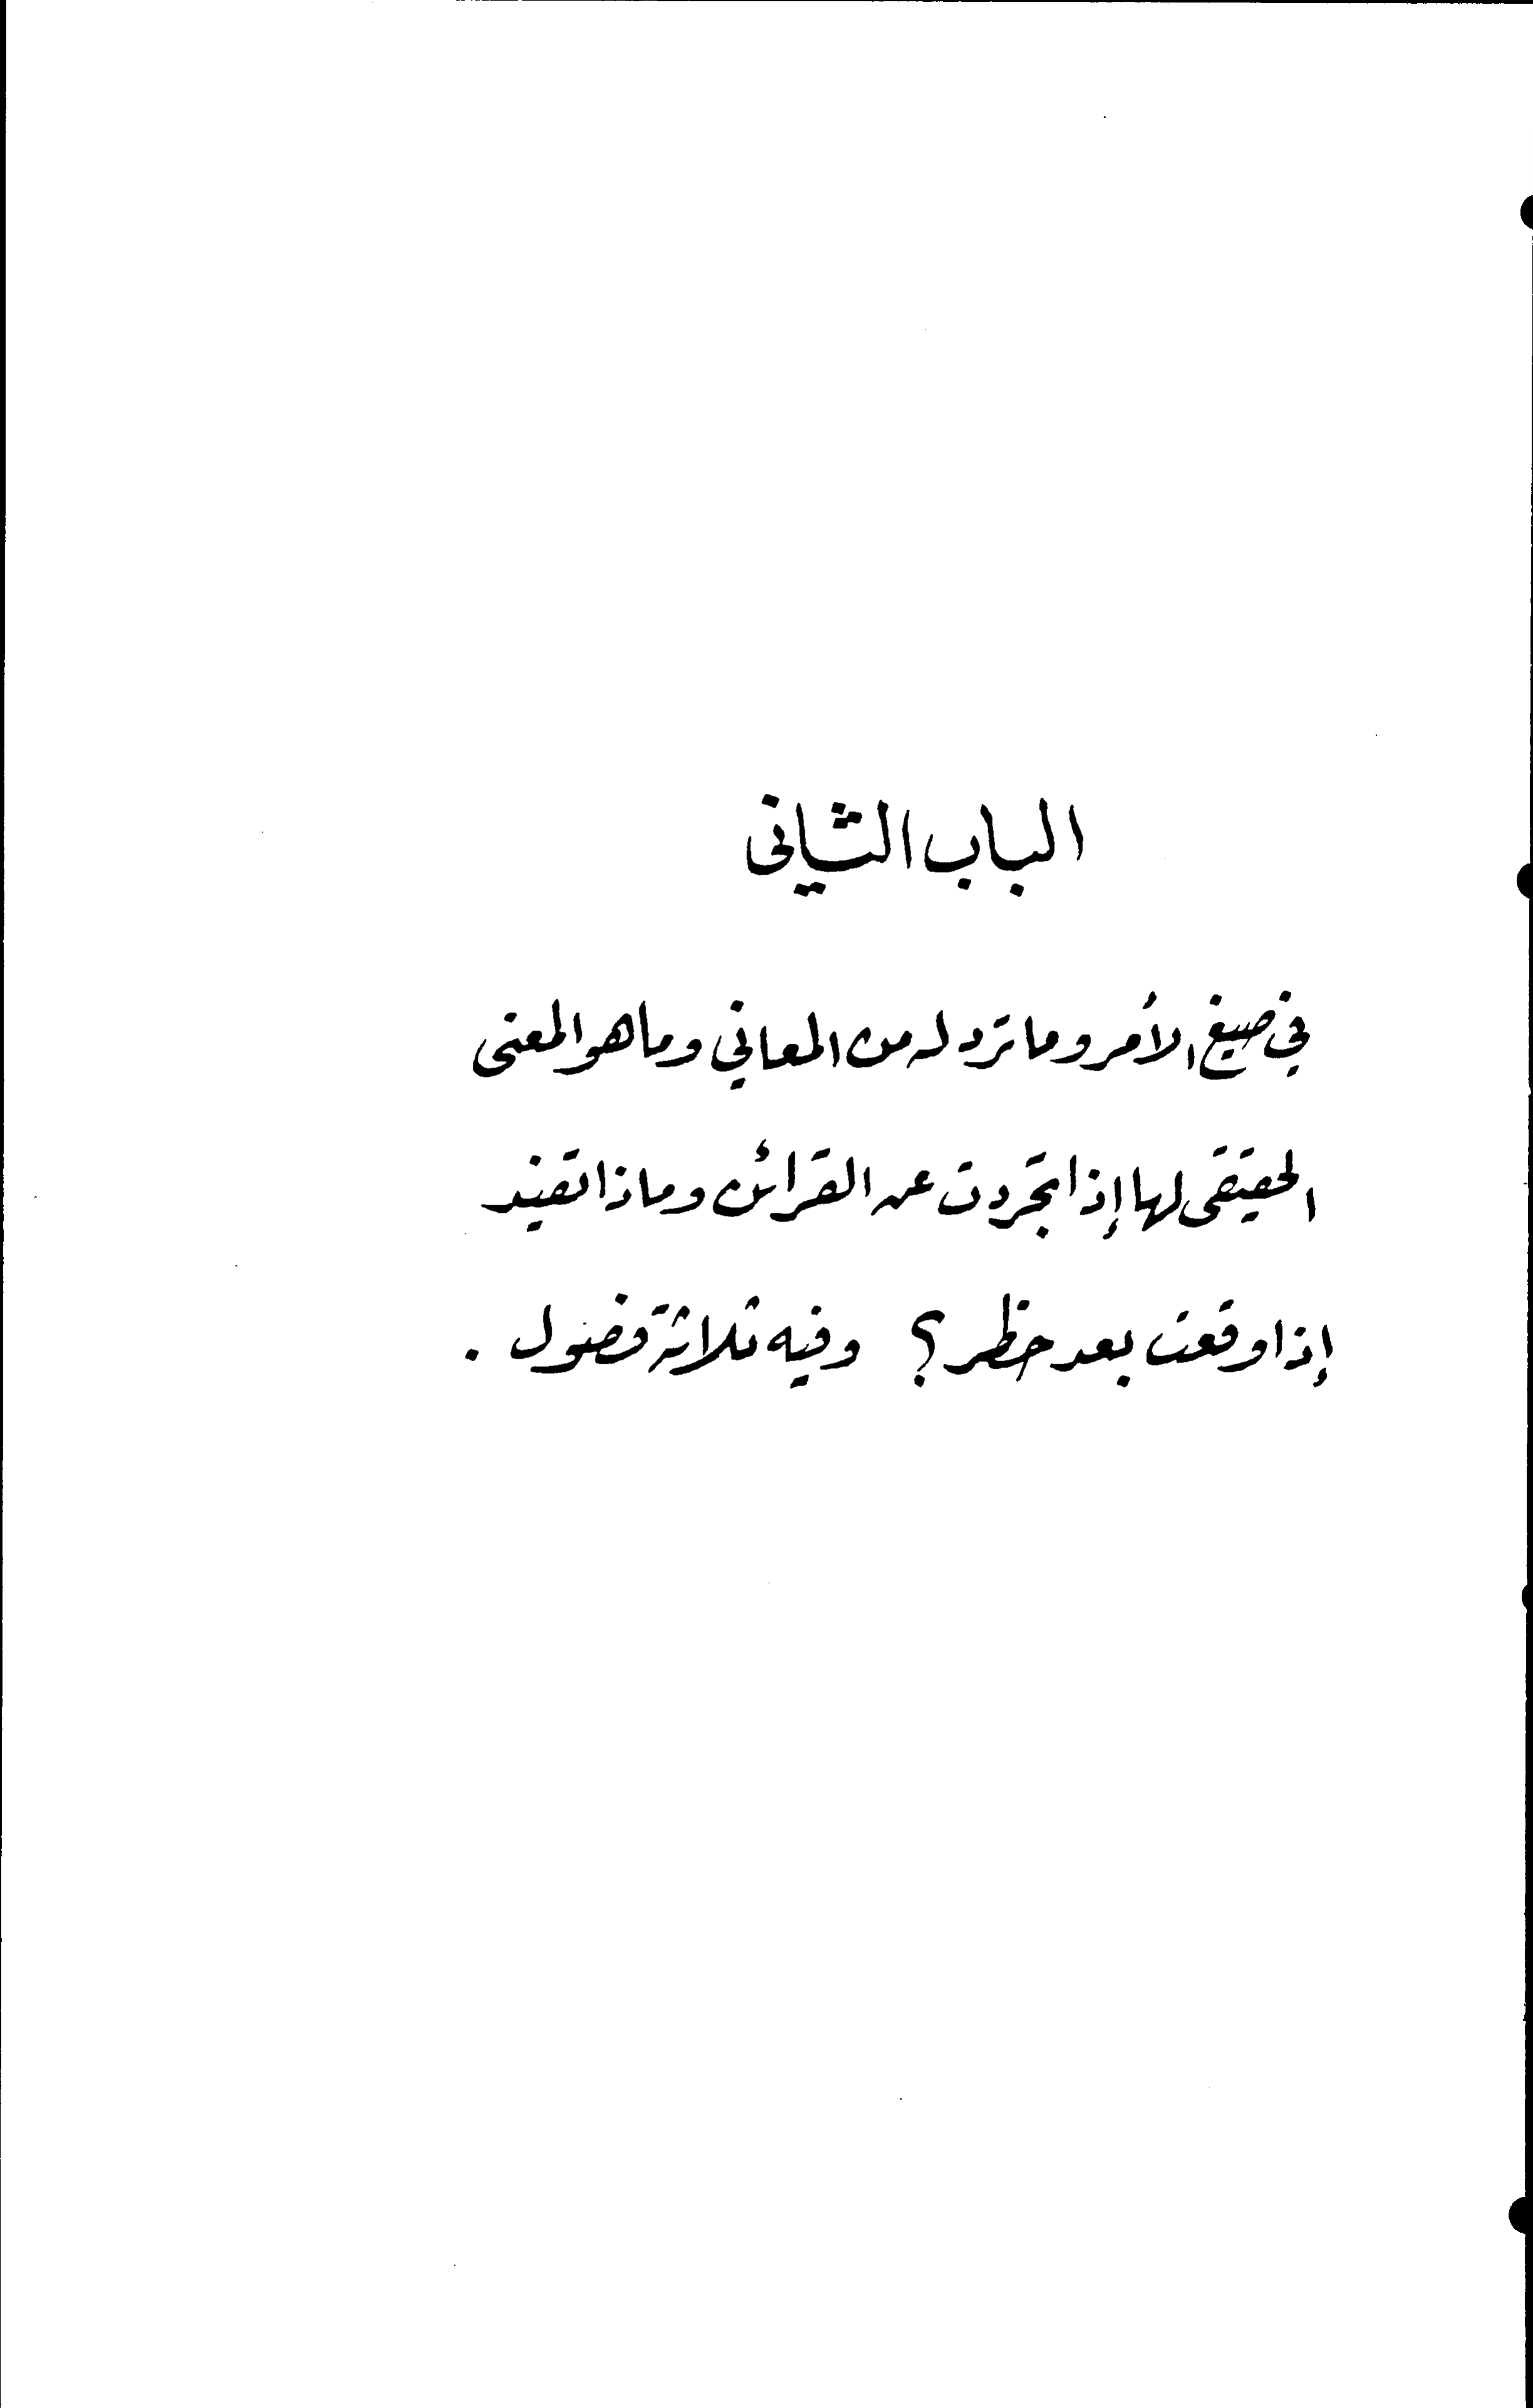 الباب الثاني
في صيغ الأمر وما ترد له من المعاني وما هو المعنى
الحقيقى لها إذا تجردت عن القرائن وماذا تفيد
إذا وقعت بعد حظر؟ وفيه ثلاثة فصول .